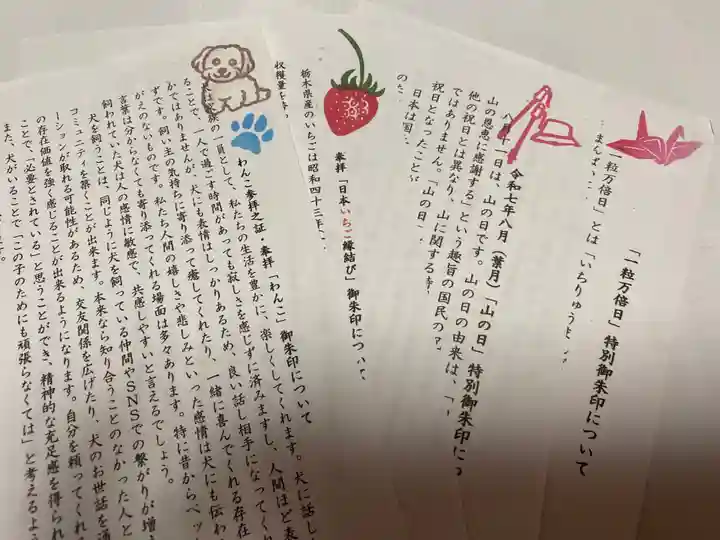 「一粒万倍日」特別御朱印について
「一粒万倍日」とは「いちりゅう
まんば
令和七年八月(葉月)「山の日」特別御朱印に
八月十一日は、山の日です。山の日の由来は、「
山の恩恵に感謝する」という趣旨の国民の
他の祝日とは異なり、山に関する
ではありません。「山の日」
祝日となったことが
日本は国
のた
奉拝「日本いちご縁結び」御朱印につい
栃木県産のいちごは昭和四十三年
収穫量を
わんこ参拝之証・奉拝「わんこ 御朱印について
家族の一員として、私たちの生活を豊かに、楽しくしてくれます。犬に話し
ることで、一人で過ごす時間があっても寂しさを感じずに済みますし、人間ほど表
かではありませんが、犬にも表情はしっかりあるため、良い話し相手になってくれ
ずです。飼い主の気持ちに寄り添って癒してくれたり、一緒に喜んでくれる存在
がえのないものです。私たち人間の嬉しさや悲しみといった感情は犬にも伝わ
言葉は分からなくても寄り添ってくれる場面は多々あります。特に昔からペッ
飼われていた犬は人の感情に敏感で、共感しやすいと言えるでしょう。
犬を飼うことは、同じように犬を飼っている仲間やSNSでの繋がりが増
コミュニティを築くことが出来ます。本来なら知り合うことのなかった人と
ーションが取れる可能性があるため、交友関係を広げたり、犬のお世話を通
の存在価値を強く感じることが出来るようになります。自分を頼ってくれる
ことで、「必要とされている」と思うことができ、精神的な充足感を得られ
また、犬がいることで「この子のためにも頑張らなくては」と考えるよう